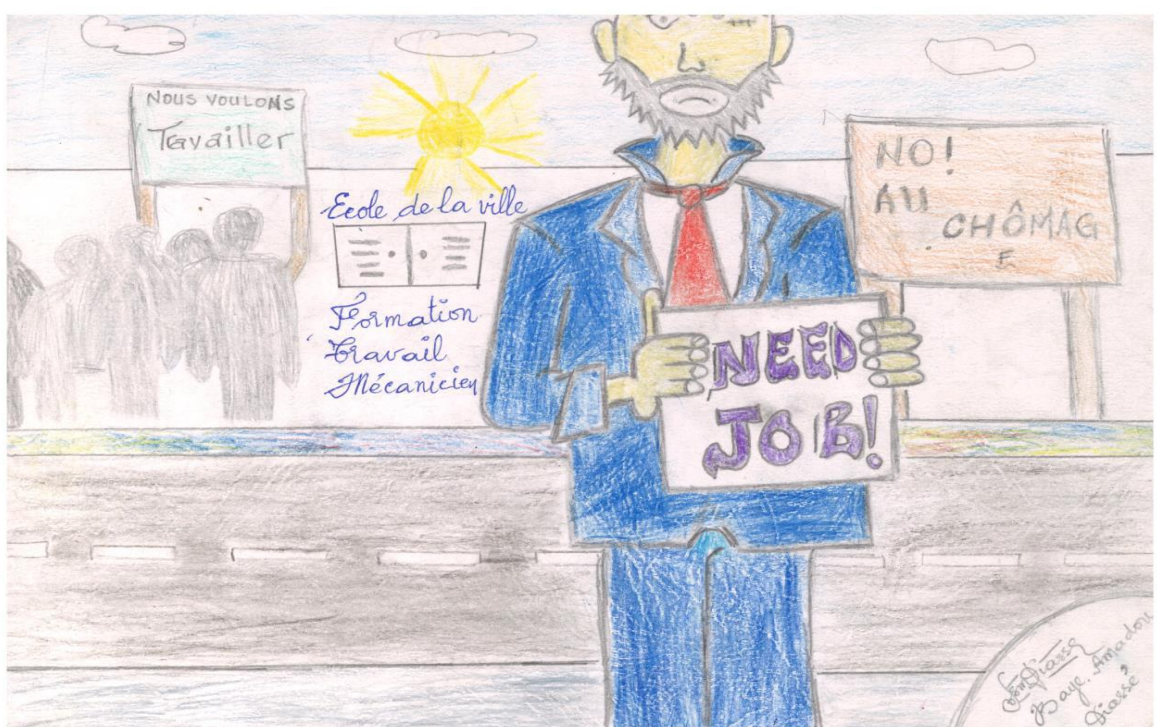 NOUS VOULONS
Travailler
Ecole de la ville
Formation
Travail
Mécanicien
NO!
AU
CHÔMAG
E
NEED
JOB!
Baye. Amadou
Diassé